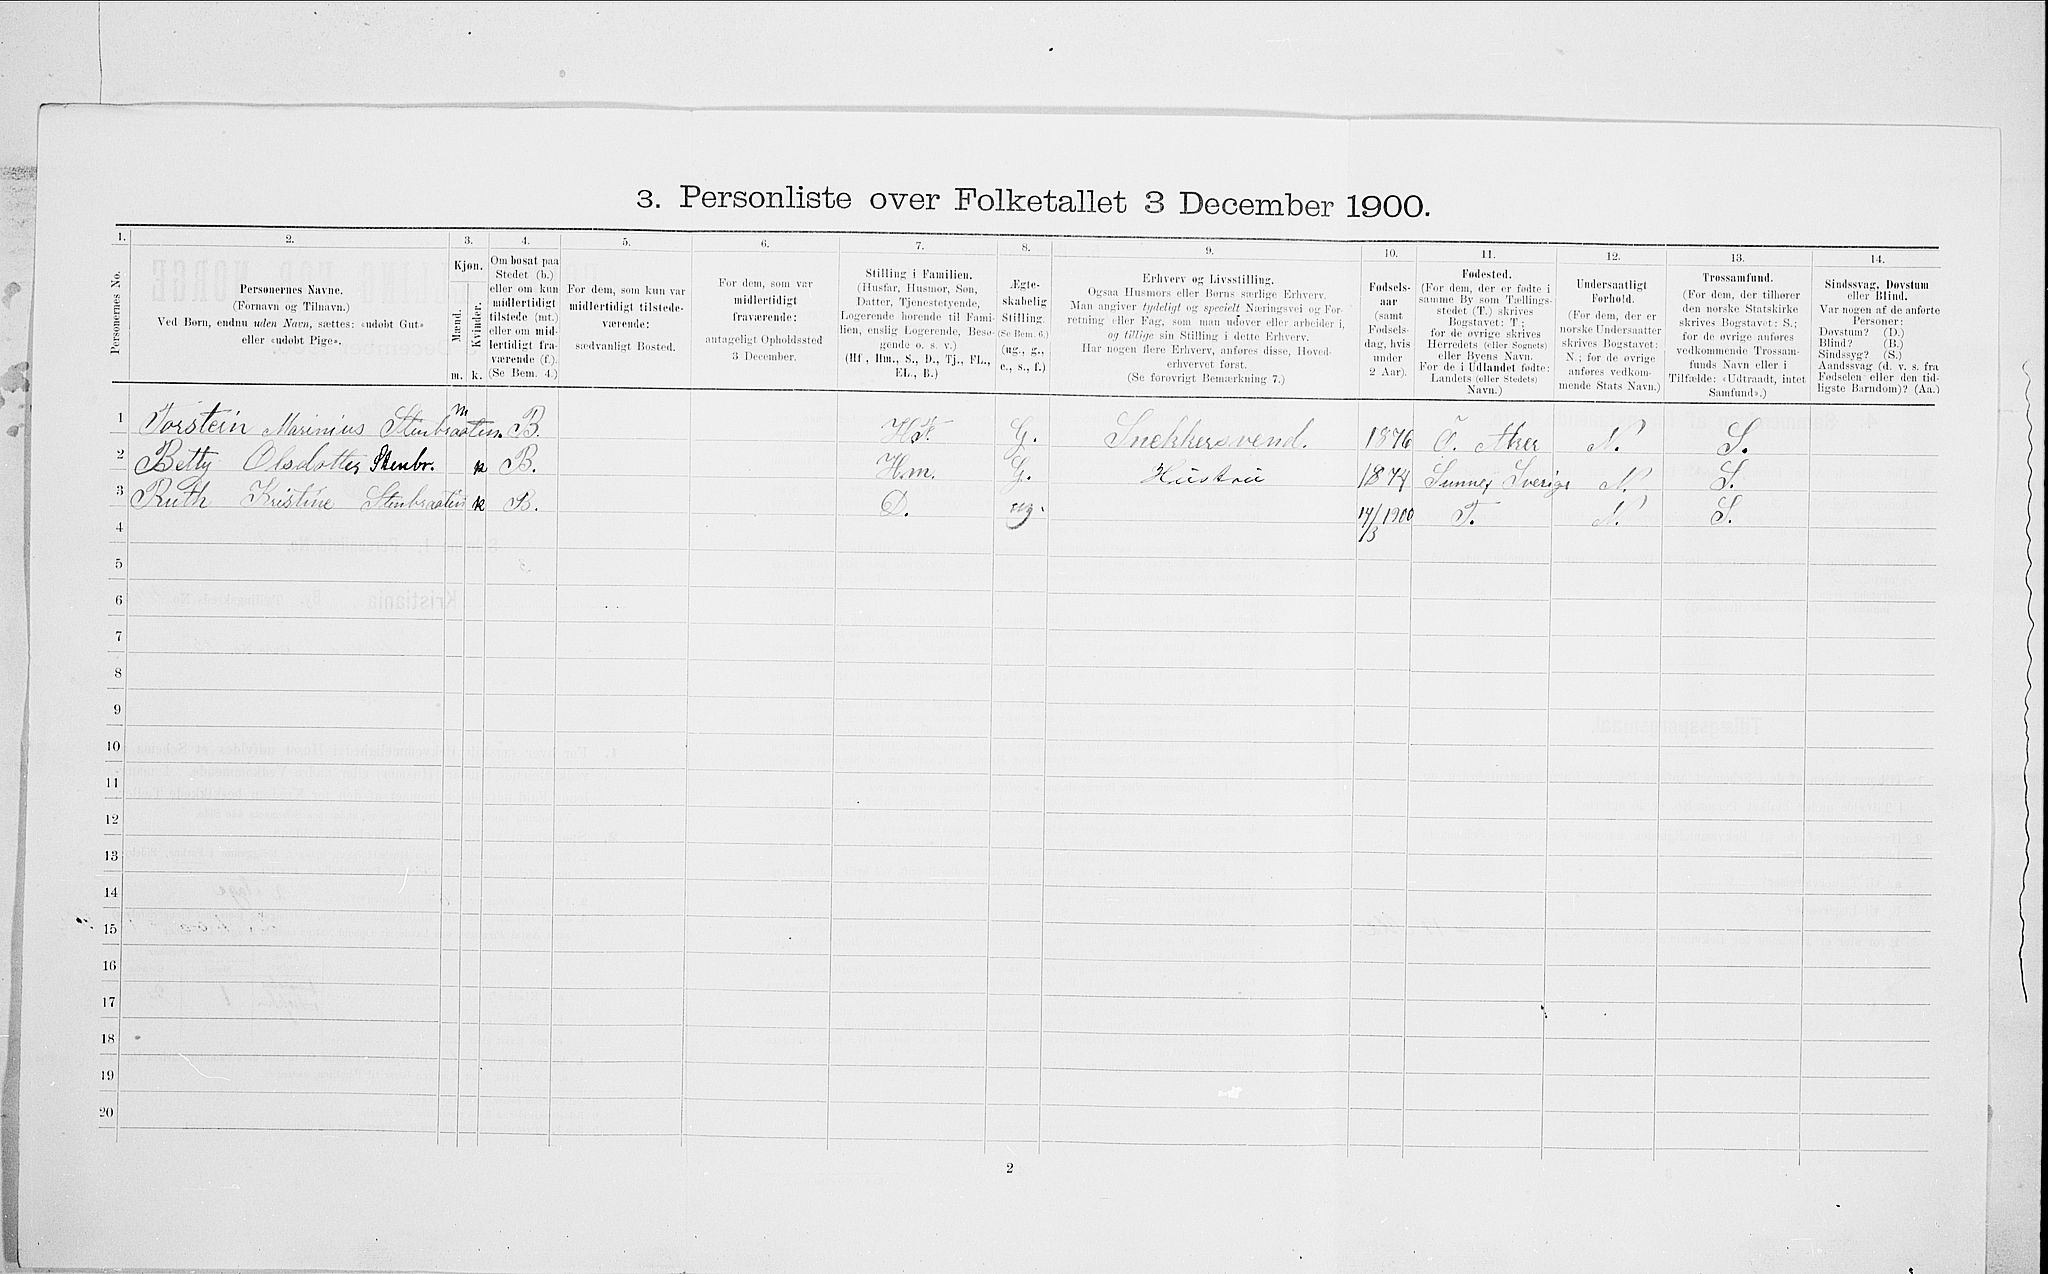 3. Personliste over Folketallet 3 December 1900.
1. 2. 3. 4. 5. 6. 7. 8. 9. 10. 11. 12. 13. 14.
Personernes No.
Personernes Navne.
(Fornavn og Tilnavn.)
Ved Børn, endnu uden Navn, sættes: «udøbt Gut»
eller «udøbt Pige».
Kjøn.
Mænd.
Kvinder.
m. k.
Om bosat paa
Stedet (b.)
eller om kun
midlertidigt
tilstede (mt.)
eller om mid-
lertidigt fra-
værende (f.).
(Se Bem. 4.)
For dem, som kun var
midlertidigt tilstede-
værende:
sædvanligt Bosted.
For dem, som var
midlertidigt
fraværende:
antageligt Opholdssted
3 December.
Stilling i Familien.
(Husfar, Husmor, Søn,
Datter, Tjenestetyende,
Logerende hørende til Fami-
lien, enslig Logerende, Besø-
gende o. s. v.)
(Hf., Hm., S., D., Tj., FL.,
EL., B.)
Ægte-
skabelig
Stilling.
(Se Bem. 6.)
(ug., g.,
e., s., f.)
Erhverv og Livsstilling.
Ogsaa Husmors eller Børns særlige Erhverv.
Man angiver tydeligt og specielt Næringsvei og For-
retning eller Fag, som man udøver eller arbeider i,
og tillige sin Stilling i dette Erhverv.
Har nogen flere Erhverv, anføres disse, Hoved-
erhvervet først.
(Se forøvrigt Bemærkning 7.)
Fødsels-
aar
(samt
Fødsels-
dag, hvis
under
2 Aar).
Fødested.
(For dem, der er fødte i
samme By som Tællings-
stedet (T.) skrives
Bogstavet: T.;
for de øvrige skrives
Herredets (eller Sognets)
eller Byens Navn.
For de i Udlandet fødte:
Landets (eller Stedets)
Navn.)
Undersaatligt
Forhold.
(For dem, der er
norske Undersaatter
skrives Bogstavet:
N.; for de øvrige
anføres vedkom-
mende Stats Navn.)
Trossamfund.
(For dem, der tilhører
den norske Statskirke
skrives Bogstavet: S.;
for de øvrige anføres
vedkommende Trossam-
funds Navn eller i
Tilfælde: «Udtraadt, intet
Samfund».)
Sindssvag, Døvstum
eller Blind.
Var nogen af de anførte
Personer:
Døvstum? (D.)
Blind? (B.)
Sindssyg? (S.)
Aandssvag (d. v. s. fra
Fødselen eller den tid-
ligste Barndom)? (Aa.)
1 Torstein Marinius Stenbraaten. m B. H.F. G. Snekkersvend. 1876 Ö. Aker N. S.
2 Betty Olsdotter Stenbr. k B. H.m. G. Hustru 1874 Sunne Sverige N. S.
3 Ruth Kristine Stenbraaten k B. D. ug. 14/3 1900 T. N. S.
4
5
6
7
8
9
10
11
12
13
14
15
16
17
18
19
20
2